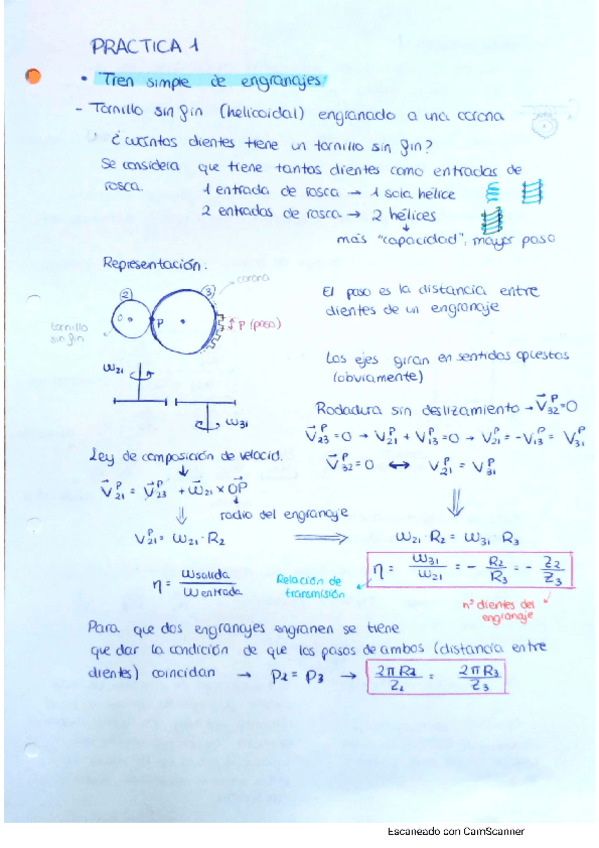 PRACTICA 1
• Tren simple de engranajes
- Tornillo sin fin (helicoidal) engranado a una corona
¿cuántos dientes tiene un tornillo sin fin?
Se considera que tiene tantos dientes como entradas de
rosca. 1 entrada de rosca → 1 sola hélice
2 entradas de rosca → 2 hélices
↓
más "capacidad", mayor paso
Representación:
corona
2
3
O
P
P (paso)
tornillo
sin fin
El paso es la distancia entre
dientes de un engranaje
ω21
ω31
Los ejes giran en sentidos opuestos
(obviamente)
Rodadura sin deslizamiento → V⃗32^P=0
V⃗23^P=0 → V21^P + V13^P=0 → V21^P = -V13^P = V31^P
V⃗32^P=0 ↔ V21^P = V31^P
Ley de composición de velocid.
↓
V⃗21^P = V⃗23^P + ω⃗21 × OP⃗
radio del engranaje
V21^P = ω21 · R2 ⟹ ω21 · R2 = ω31 · R3
η = ωsalida / ωentrada
Relación de
transmisión
η = ω31/ω21 = - R2/R3 = - Z2/Z3
nº dientes del
engranaje
Para que dos engranajes engranen se tiene
que dar la condición de que los pasos de ambos (distancia entre
dientes) coincidan → P2 = P3 → 2πR2/Z2 = 2πR3/Z3
Escaneado con CamScanner